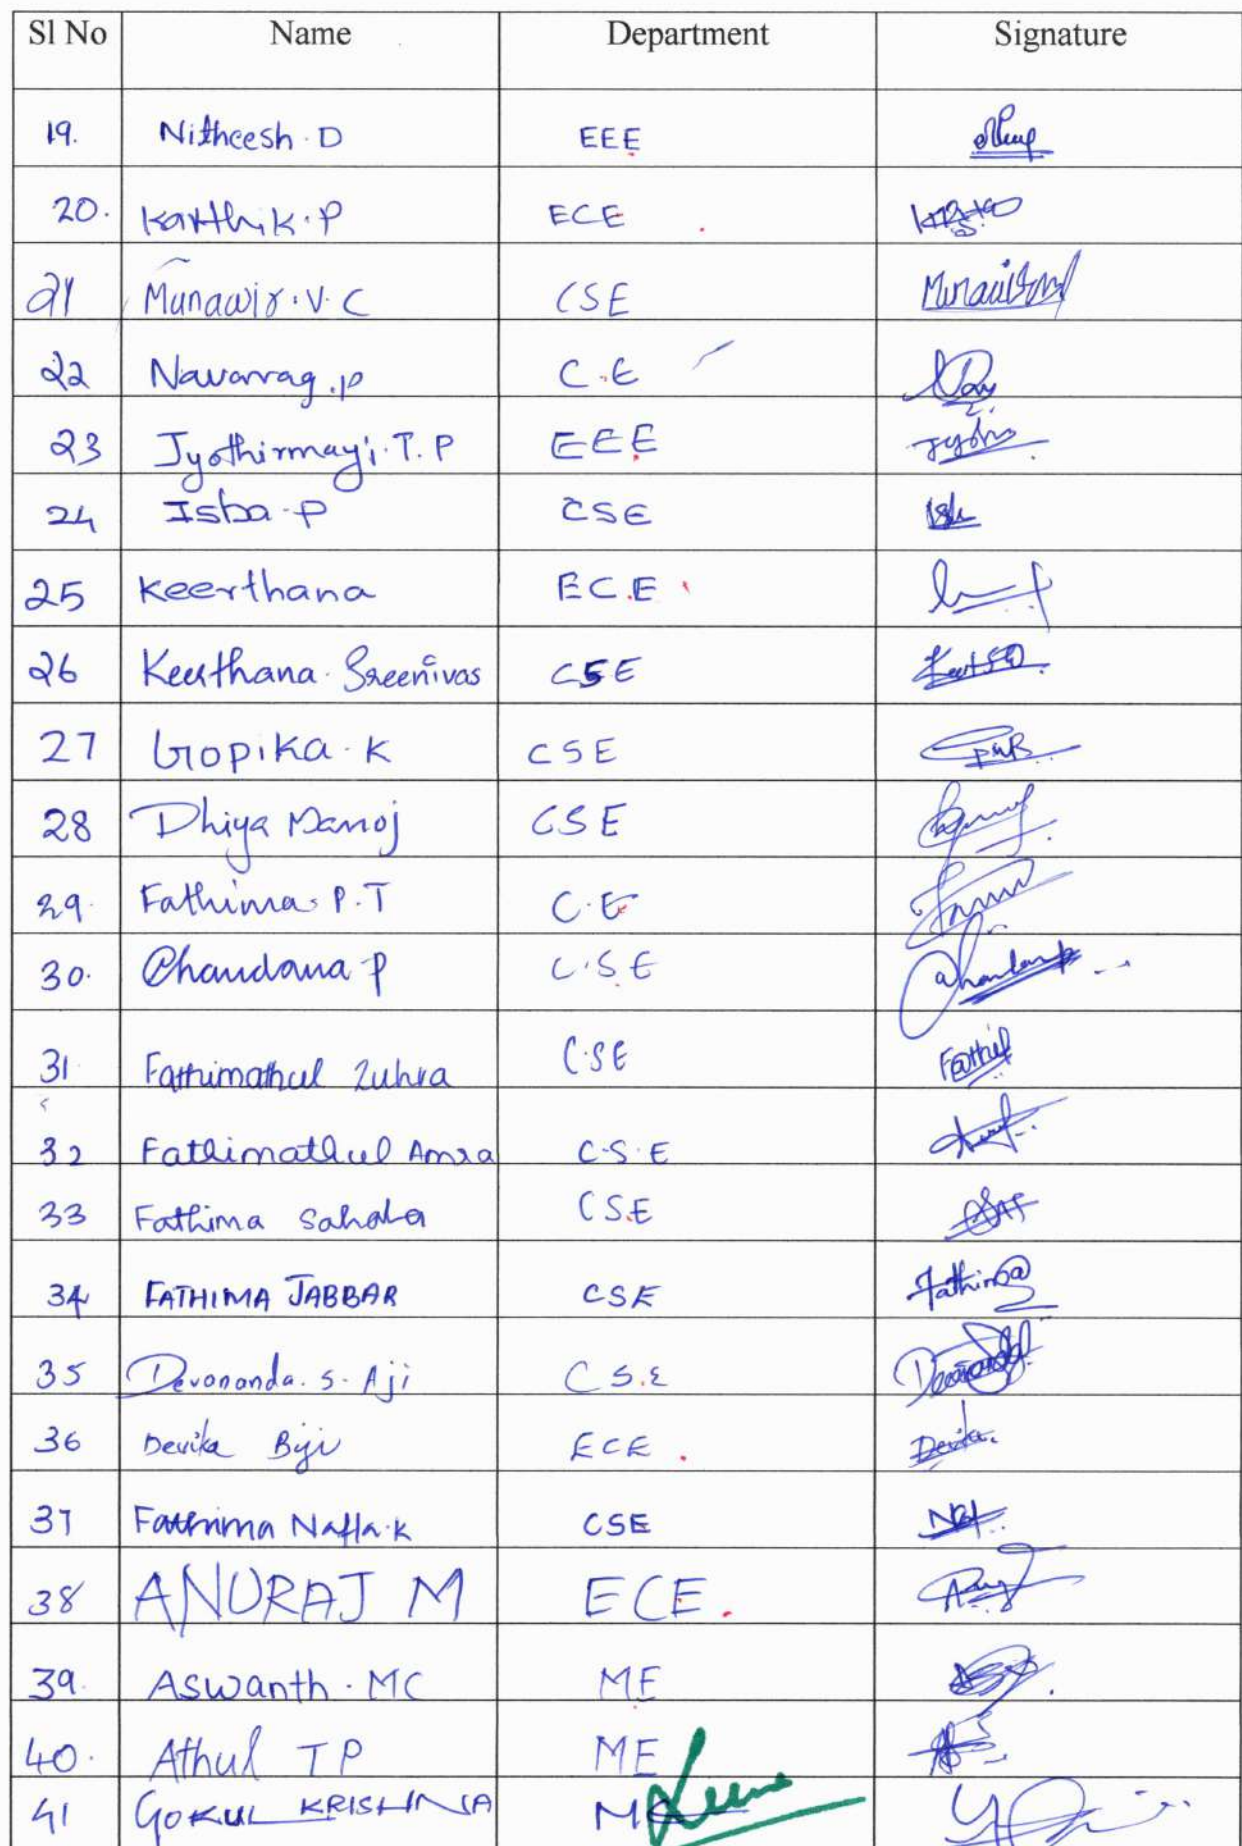 Sl No Name Department Signature
19. Nitheesh. D EEE
20. Karthik. P ECE
21 Munawir. V. C CSE
22 Navaneeg. P C.E
23 Jyothirmayi. T. P EEE Jyothi
24 Isba. P CSE Isb
25 Keerthana ECE
26 Keerthana. Sreenivas CSE
27 Gopika. K CSE
28 Dhiya Manoj CSE
29. Fathima. P. T C.E
30. Chandana P C.S.E
31 Fathimathul Zuhra C.SE
32 Fathimathul Amra C.S.E
33 Fathima Sahala CSE
34 FATHIMA JABBAR CSE Fathima
35 Devananda. S. Aji C S.E
36 Devika Biji ECE. Devika.
37 Fathima Nafla. K CSE
38 ANURAJ M ECE.
39. Aswanth. MC ME
40. Athul T P ME
41 GOKUL KRISHNA